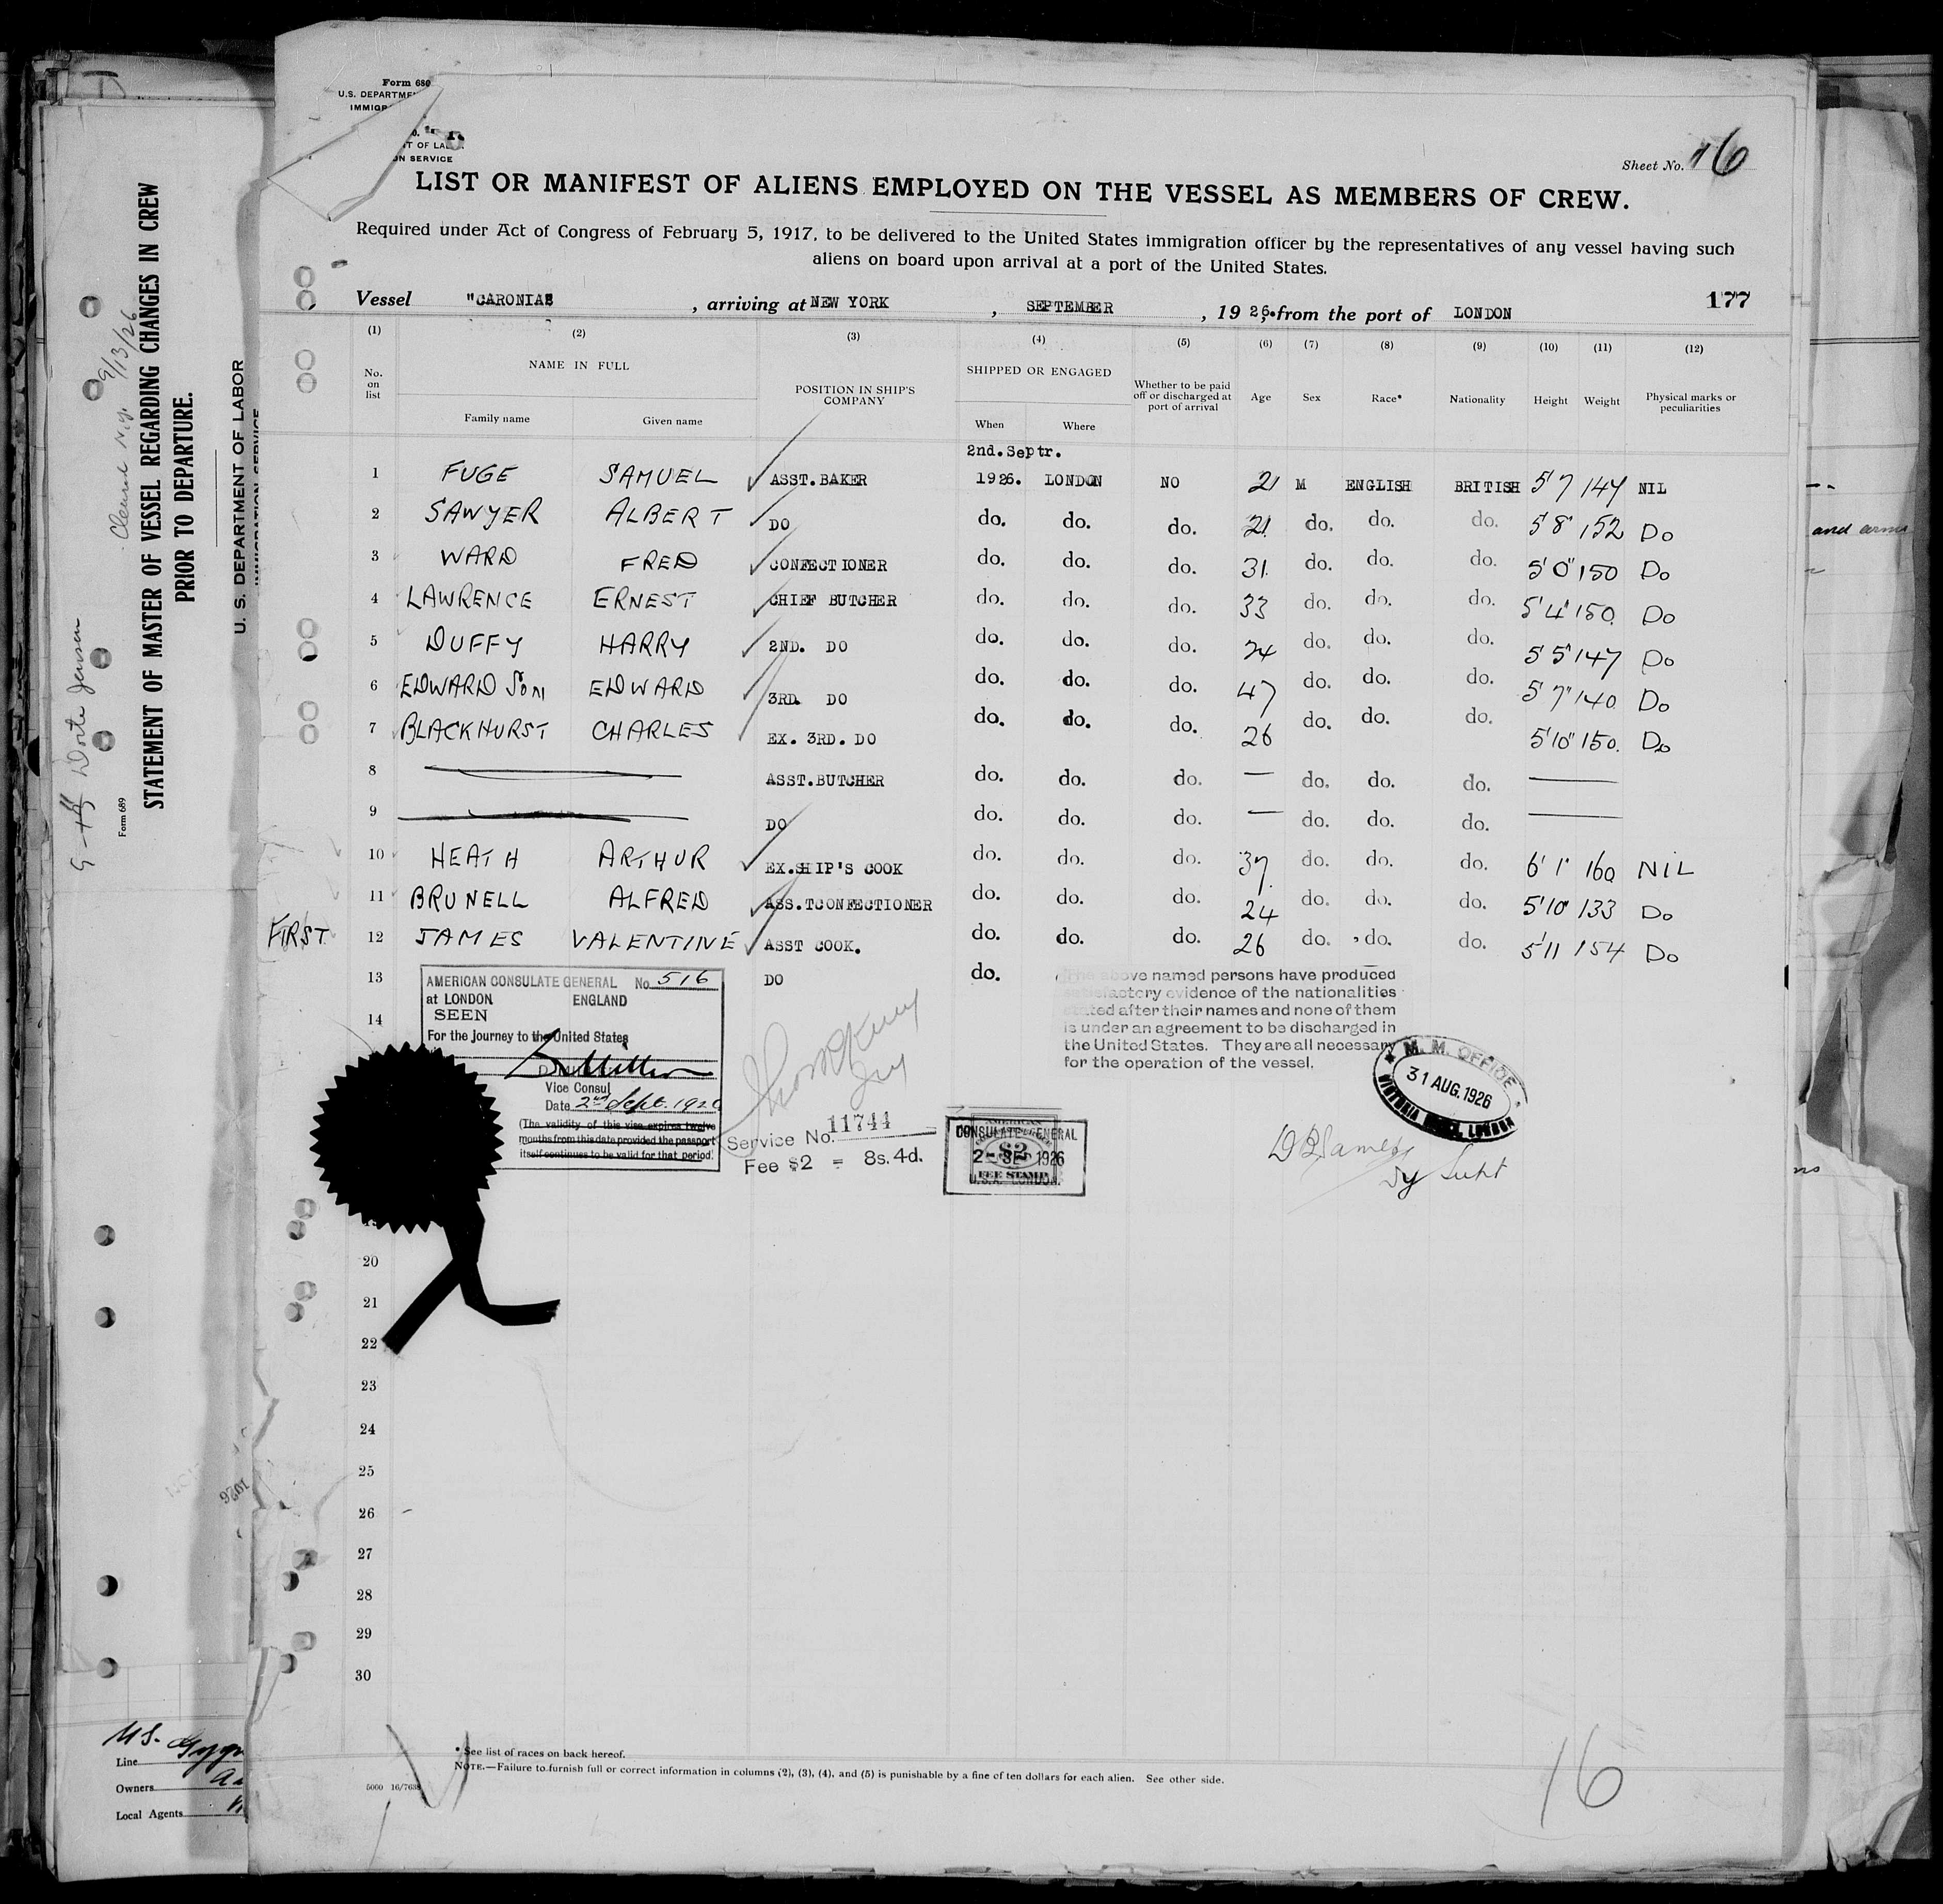 Form 680
U.S. DEPARTME
IMMIGR
T OF LA
ON SERVICE
Sheet No. 16
LIST OR MANIFEST OF ALIENS EMPLOYED ON THE VESSEL AS MEMBERS OF CREW.
Required under Act of Congress of February 5, 1917, to be delivered to the United States immigration officer by the representatives of any vessel having such
aliens on board upon arrival at a port of the United States.
Vessel "CARONIA" , arriving at NEW YORK , SEPTEMBER , 1926, from the port of LONDON 177
(1) (2) (3) (4) (5) (6) (7) (8) (9) (10) (11) (12)
No. on list NAME IN FULL Family name Given name POSITION IN SHIP'S COMPANY SHIPPED OR ENGAGED When Where Whether to be paid off or discharged at port of arrival Age Sex Race* Nationality Height Weight Physical marks or peculiarities
2nd.Septr.
1 FUGE SAMUEL ASST.BAKER 1926. LONDON NO 21 M ENGLISH BRITISH 5'7 147 NIL
2 SAWYER ALBERT DO do. do. do. 21. do. do. do. 5'8" 152 Do
3 WARD FRED CONFECTIONER do. do. do. 31. do. do. do. 5'0" 150 Do
4 LAWRENCE ERNEST CHIEF BUTCHER do. do. do. 33 do. do. do. 5'4" 150. Do
5 DUFFY HARRY 2ND. DO do. do. do. 24 do. do. do. 5'5" 147 Do
6 EDWARDSON EDWARD 3RD. DO do. do. do. 47 do. do. do. 5'7" 140 Do
7 BLACKHURST CHARLES EX. 3RD. DO do. do. do. 26 do. do. do. 5'10" 150. Do
8 ASST.BUTCHER do. do. do. — do. do. do. —
9 DO do. do. do. — do. do. do. —
10 HEATH ARTHUR EX.SHIP'S COOK do. do. do. 37. do. do. do. 6'1" 160 NIL
11 BRUNELL ALFRED ASS.TCONFECTIONER do. do. do. 24 do. do. do. 5'10" 133 Do
FIRST 12 JAMES VALENTINE ASST COOK. do. do. do. 26 do. do. do. 5'11 154 Do
13 DO do.
14
AMERICAN CONSULATE GENERAL No. 516
at LONDON ENGLAND
SEEN
For the Journey to the United States
Vice Consul
Date 2nd Sept. 1926
(The validity of this visa expires twelve
months from this date provided the passport
itself continues to be valid for that period.
The above named persons have produced
satisfactory evidence of the nationalities
stated after their names and none of them
is under an agreement to be discharged in
the United States. They are all necessary
for the operation of the vessel.
M. M. OFFICE
31 AUG. 1926
LONDON
Service No. 11744
Fee $2 = 8s. 4d.
AMERICAN
CONSULATE GENERAL
$2
2 - SEP 1926
FEE STAMP
U.S.A. LONDON.
Dy Supt
20
21
22
23
24
25
26
27
28
29
30
* See list of races on back hereof.
NOTE.—Failure to furnish full or correct information in columns (2), (3), (4), and (5) is punishable by a fine of ten dollars for each alien. See other side.
16
STATEMENT OF MASTER OF VESSEL REGARDING CHANGES IN CREW
PRIOR TO DEPARTURE.
U. S. DEPARTMENT OF LABOR
IMMIGRATION SERVICE
Form 689
9/13/26
1926
Line
Owners
Local Agents
and arms